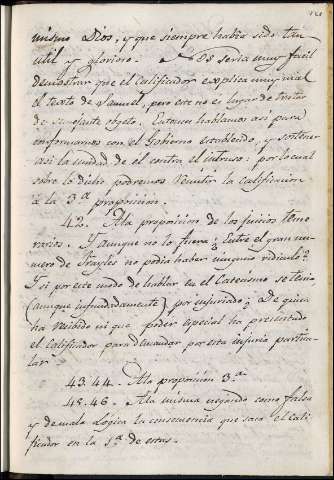 mismo Dios, y que siempre habia sido tan
util y glorioso. Os seria muy facil
demostrar que el Calificador explica muy mal
el texto de Samuel, pero este no es lugar de tratar
de semejante objeto. Entonces hablamos asi para
conformarnos con el Gobierno establecido, y sostener
asi la unidad de el contra el intruso: por lo cual
sobre lo dicho podremos remitir la Calificacion
à la 3ª proposicion.
42. A la proposicion de los juicios teme
rarios. Y aunque no lo fuera ¿Entre el gran nu
mero de Frayles no podia haber ninguno ridiculo?
Y si por este modo de hablar en el Catecismo se tenia
(aunque infundadamente) por injuriado ¿De quien
ha recibido ni que poder especial ha presentado
el Calificador para demandar por esta injuria particu
lar?
43.44. A la proposicion 3ª
45.46. A la misma negando como falsa
y de mala Lógica la consecuencia que saca el Cali
ficador en la 1ª de estas.